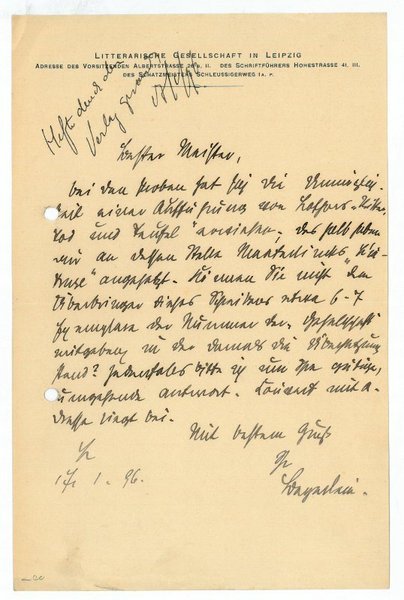 LITTERARISCHE GESELLSCHAFT IN LEIPZIG
ADRESSE DES VORSITZENDEN ALBERTSTRASSE 26B. II. DES SCHRIFTFÜHRERS HOHESTRASSE 41. III.
DES SCHATZMEISTERS SCHLEUSSIGERWEG 1A. P.
Hefte durch den
Verlag
Bester Meister,
bei den Proben hat sich die Unmöglich-
keit einer Aufführung von "Ritter,
Tod und Teufel" erwiesen, deshalb haben
wir an dessen Stelle Maeterlincks
angesetzt. Können Sie nicht dem
Überbringer dieses Schreibens etwa 6-7
Exemplare der Nummer der Gesellschaft
mitgeben, in der damals die Übersetzung
stand? Jedenfalls bitte ich um Ihre gütige,
umgehende Antwort. Couvert mit A-
dresse liegt bei.
Mit bestem Gruß
Ihr
17/1.96.